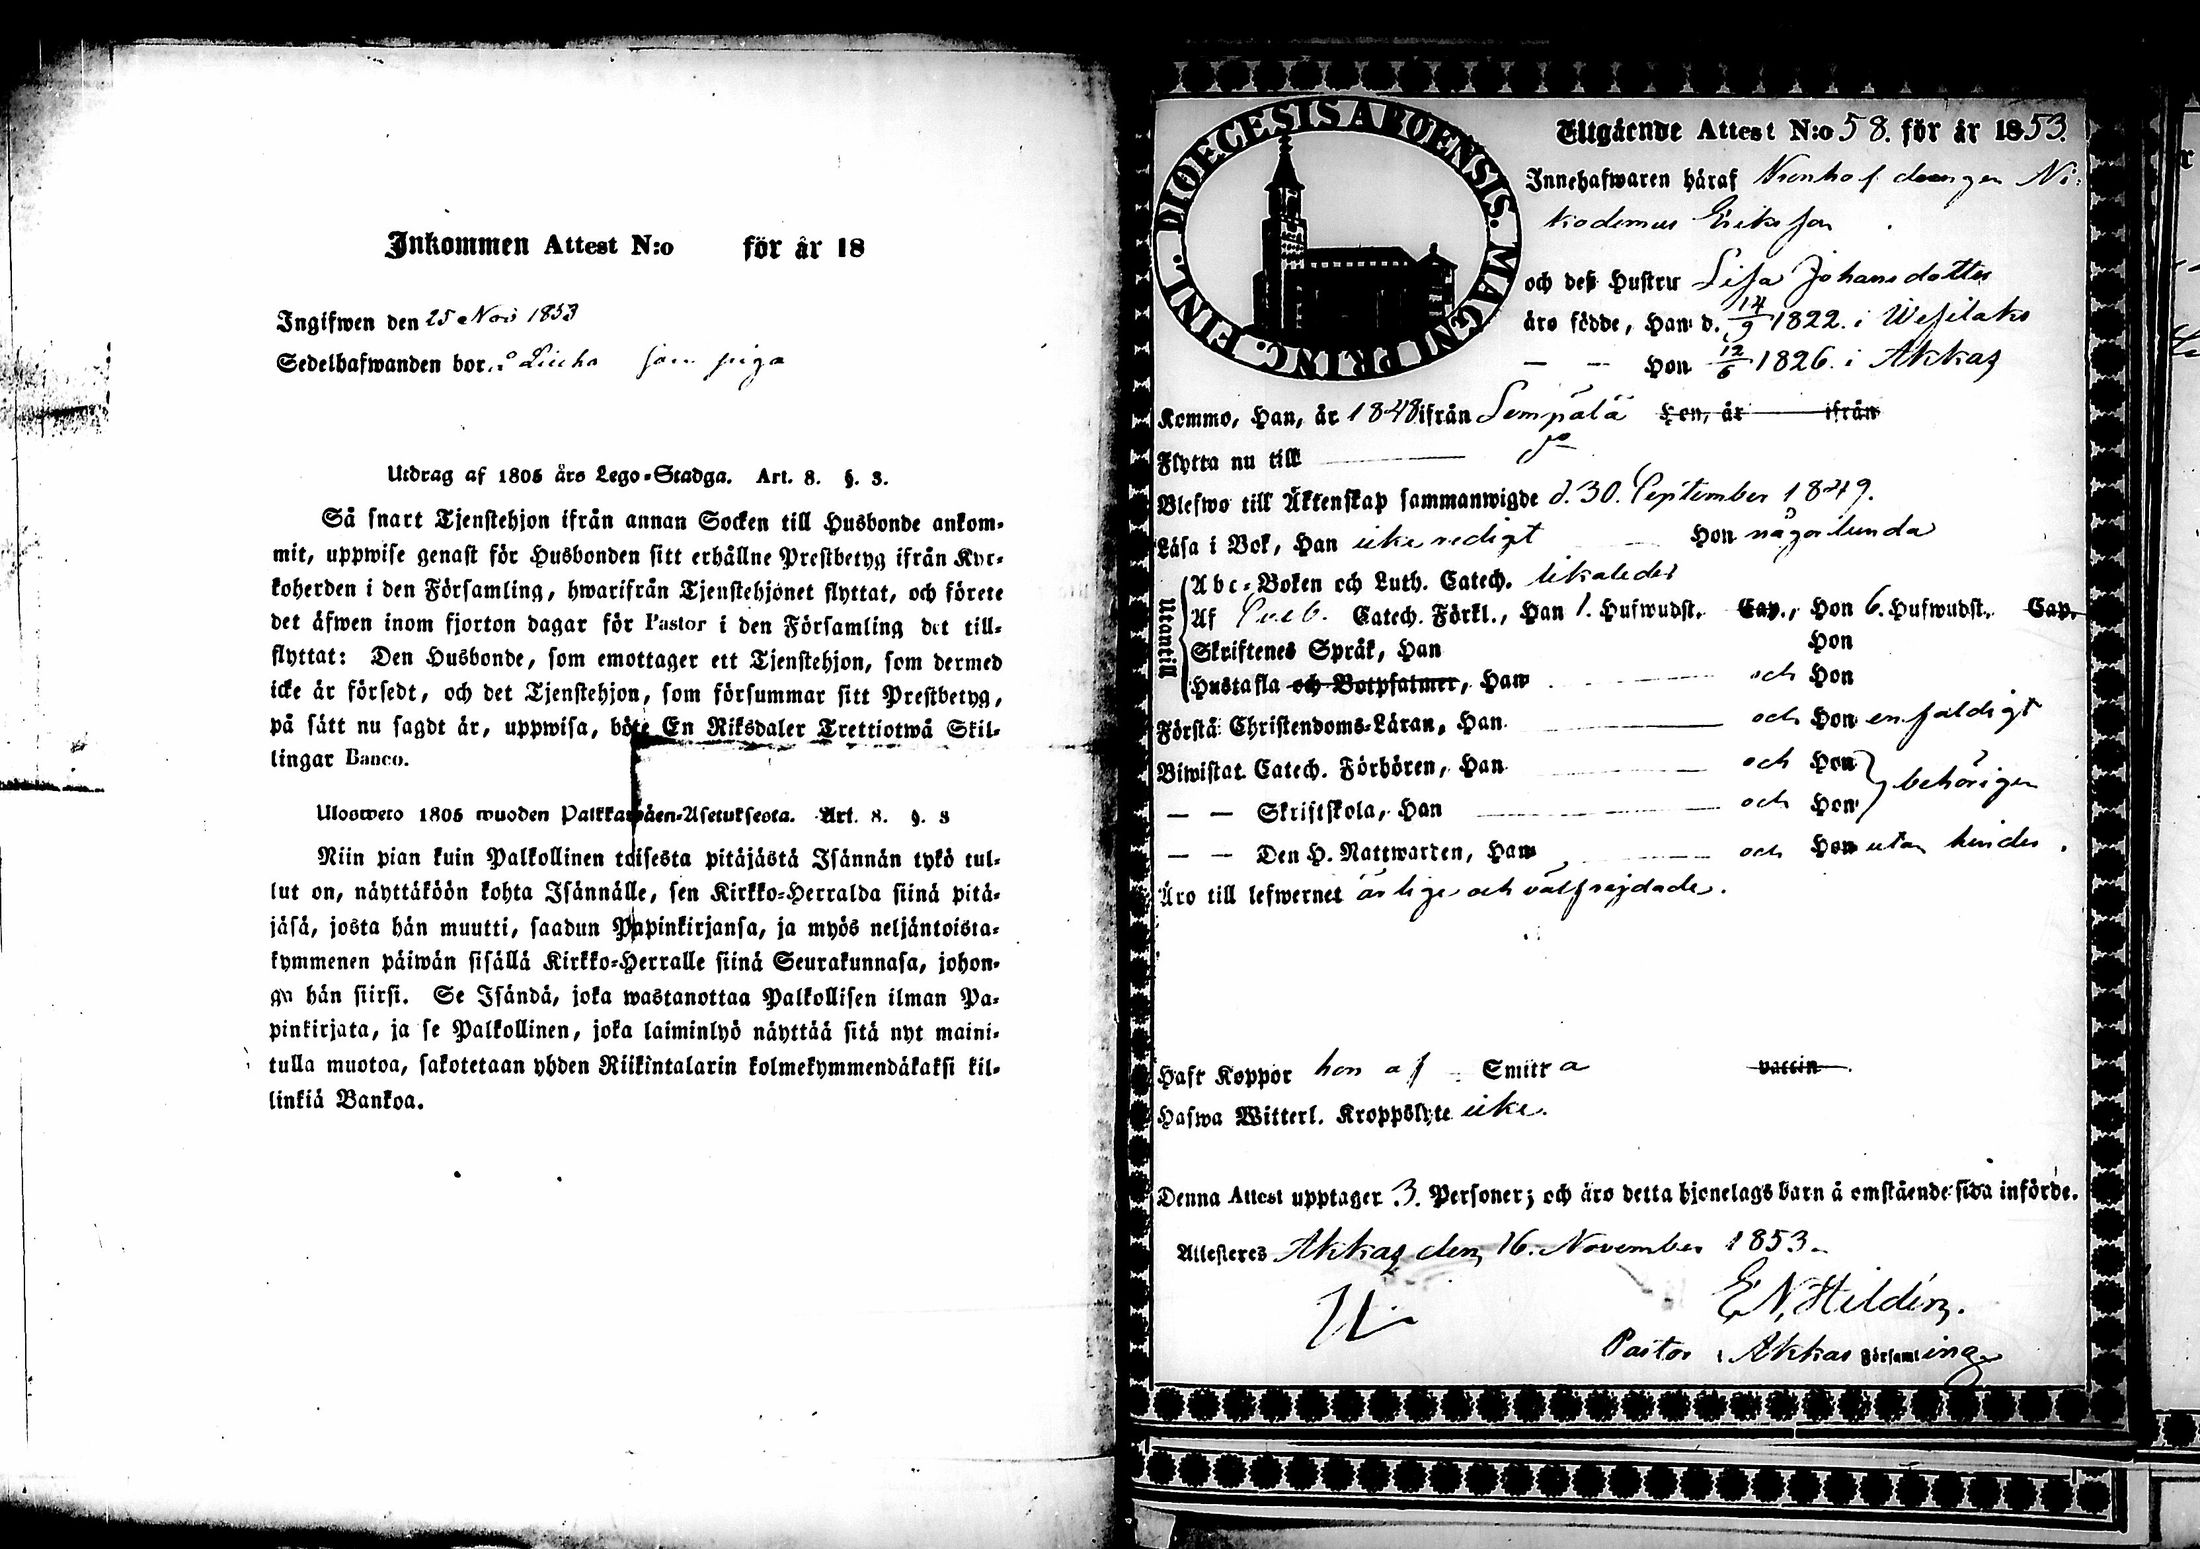 Inkommen Attest N:o för år 18
Ingifwen den 25 Nov 1853
Sedelhafwanden bor i som piga
Utdrag af 1805 års Lego-Stadga. Art. 8. §. 3.
Så snart Tjenstehjon ifrån annan Socken till Husbonde ankom-
mit, uppwise genast för Husbonden sitt erhållne Prestbetyg ifrån Kyr-
koherden i den Församling, hwarifrån Tjenstehjonet flyttat, och förete
det äfwen inom fjorton dagar för Pastor i den Församling det till-
flyttat: Den Husbonde, som emottager ett Tjenstehjon, som dermed
icke är försedt, och det Tjenstehjon, som försummar sitt Prestbetyg,
på sätt nu sagdt är, uppwisa, böte En Riksdaler Trettiotwå Skil-
lingar Banco.
Ulosweto 1805 wuoden Palkkawäen-Asetuksesta. Art. 8. §. 3
Niin pian kuin Palkollinen toisesta pitäjästä Isännän tykö tul-
lut on, näyttäköön kohta Isännälle, sen Kirkko-Herralda siinä pitä-
jäsä, josta hän muutti, saadun Papinkirjansa, ja myös neljäntoista-
kymmenen päiwän sisällä Kirkko-Herralle siinä Seurakunnasa, johon-
ga hän siirsi. Se Isändä, joka wastanottaa Palkollisen ilman Pa-
pinkirjata, ja se Palkollinen, joka laiminlyö näyttää sitä nyt maini-
tulla muotoa, sakotetaan yhden Riikintalarin kolmekymmendäkaksi kil-
linkiä Bankoa.
DIOECESIS ABOENSIS. MAGNI PRINC. FINL.
Utgående Attest N:o 58. för år 1853.
Innehafwaren häraf drengen Ni-
kodemus Eriksson
och deß Hustru Lisa Johansdotter
äro födde, Han d. 14/9 1822. i Wesilaks
— — Hon 12/6 1826. i Akkas
Kommo, Han, år 1848 ifrån Lempälä Hon, år ifrån
Flytta nu till do
Blefwo till Äktenskap sammanwigde d. 30. September 1849.
Läsa i Bok, Han icke redigt Hon någorlunda
Utantill
Abc-Boken och Luth. Catech. likaledes
Af Catech. Förkl., Han 1. Hufwudst. Cap., Hon 6. Hufwudst. Cap.
Skriftenes Språk, Han Hon
Hustafla och Botpsalmer, Han och Hon
Förstå Christendoms-Läran, Han och Hon enfaldigt
Biwistat Catech. Förhören, Han och Hon behörigen
— — Skriftskola, Han och Hon
— — Den H. Nattwarden, Han och Hon utan hinder.
Äro till lefwernet ärlige och välfrejdade.
Haft Koppor hon af Smitta vaccin
Hafwa Witterl. Kroppslyte icke.
Denna Attest upptager 3. Personer; och äro detta hjonelags barn å omstående sida införde.
Attesteres Akkas den 16. November 1853.
E N, Hildén.
Pastor i Akkas Församling